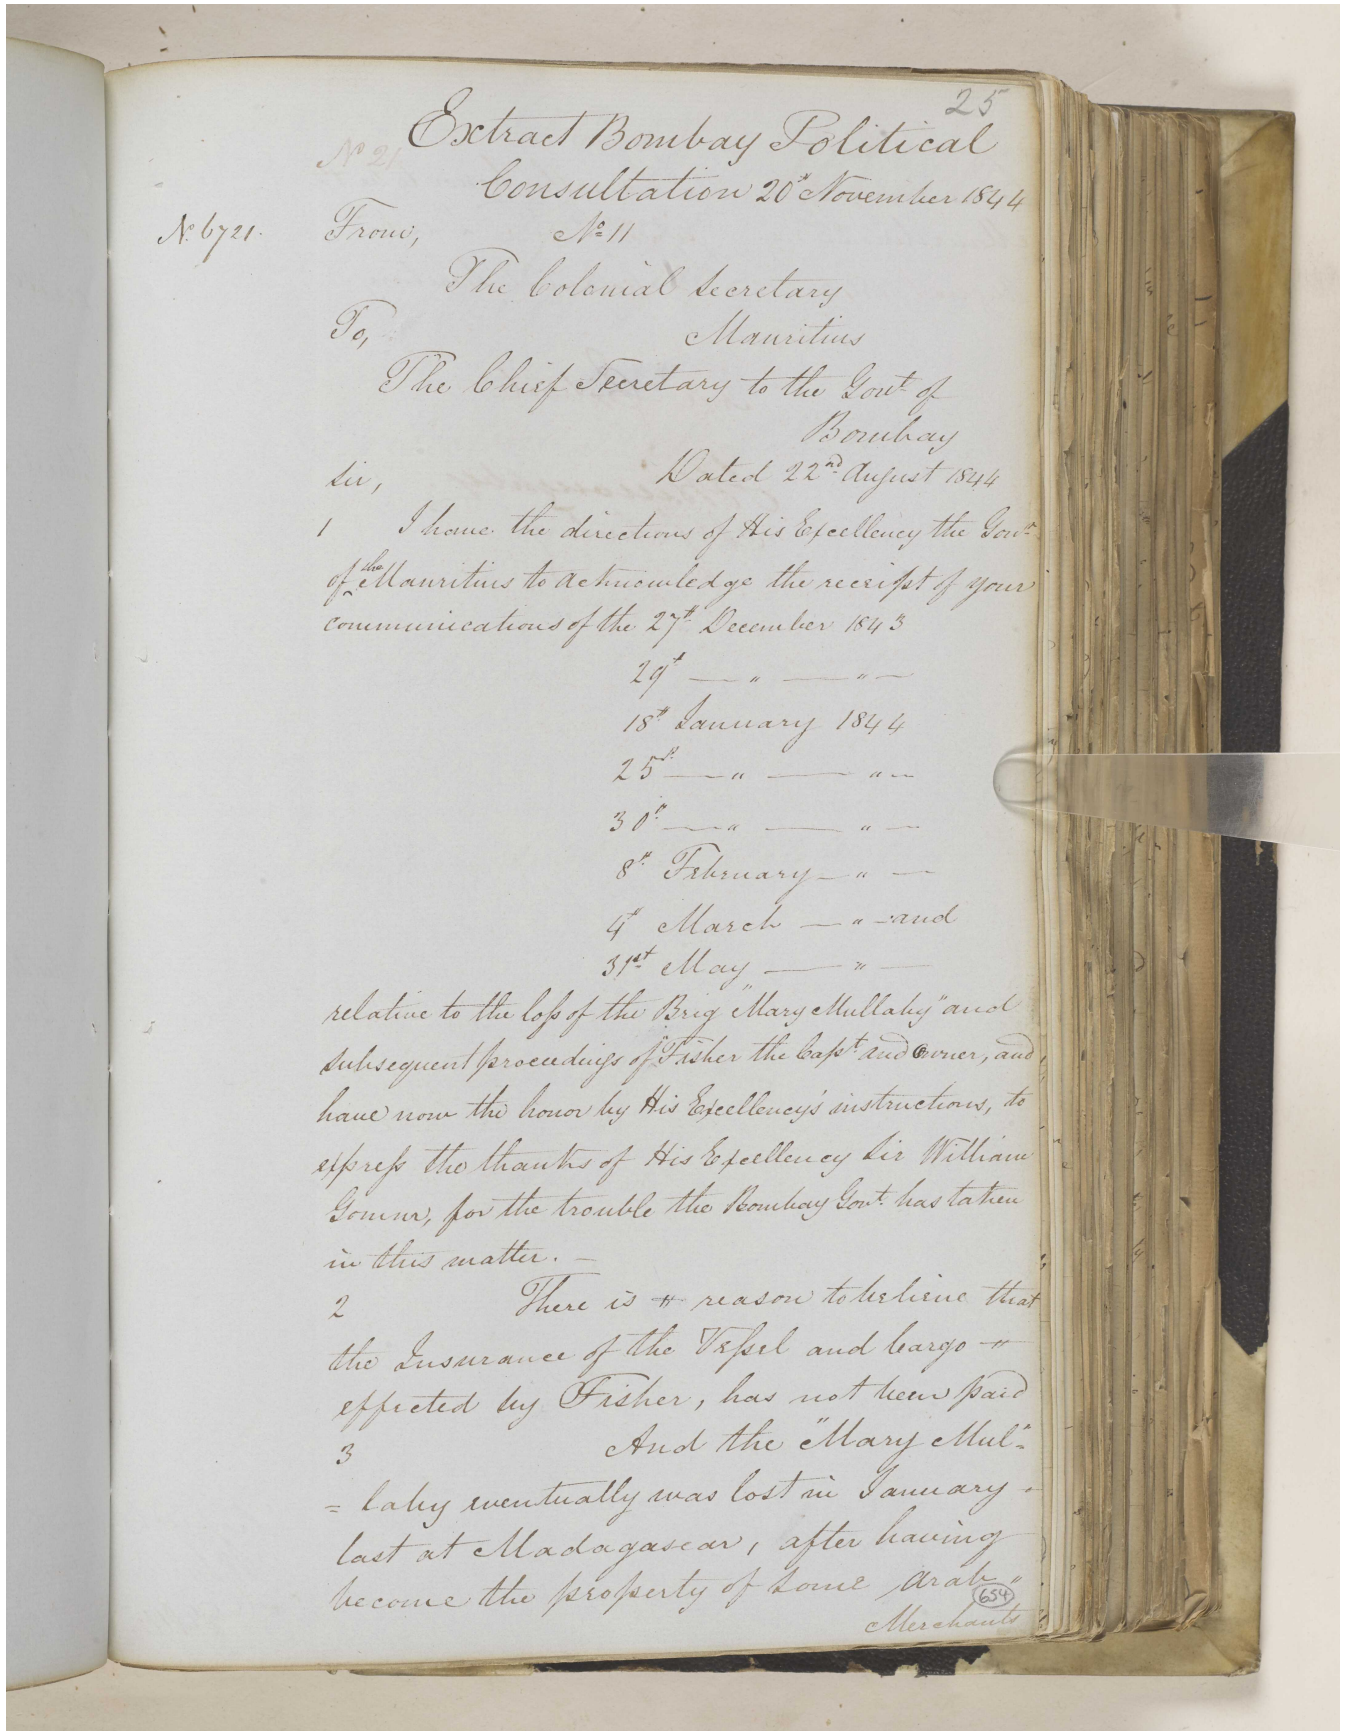 25
Extract Bombay Political
No 21
Consultation 20th November 1844
No. 6721.
From, No 11
The Colonial Secretary
To, Mauritius
The Chief Secretary to the Govt. of
Bombay
Sir, Dated 22nd August 1844
1 I have the directions of His Excellency the Govr.
of the Mauritius to acknowledge the receipt of your
communications of the 27th December 1843
29th — " — " —
18th January 1844
25th — " — " —
30th — " — " —
8th February — " —
4th March — " — and
31st May — " —
relative to the loss of the Brig "Mary Mullaby" and
subsequent proceedings of Fisher the Capt. and Owner, and
have now the honor by His Excellency's instructions, to
express the thanks of His Excellency Sir William
Gomm, for the trouble the Bombay Govt. has taken
in this matter. —
2 There is reason to believe that
the Insurance of the Vessel and Cargo
effected by Fisher, has not been paid
3 And the "Mary Mul=
=laby eventually was lost in January
last at Madagascar, after having
become the property of some Arab
654
Merchants